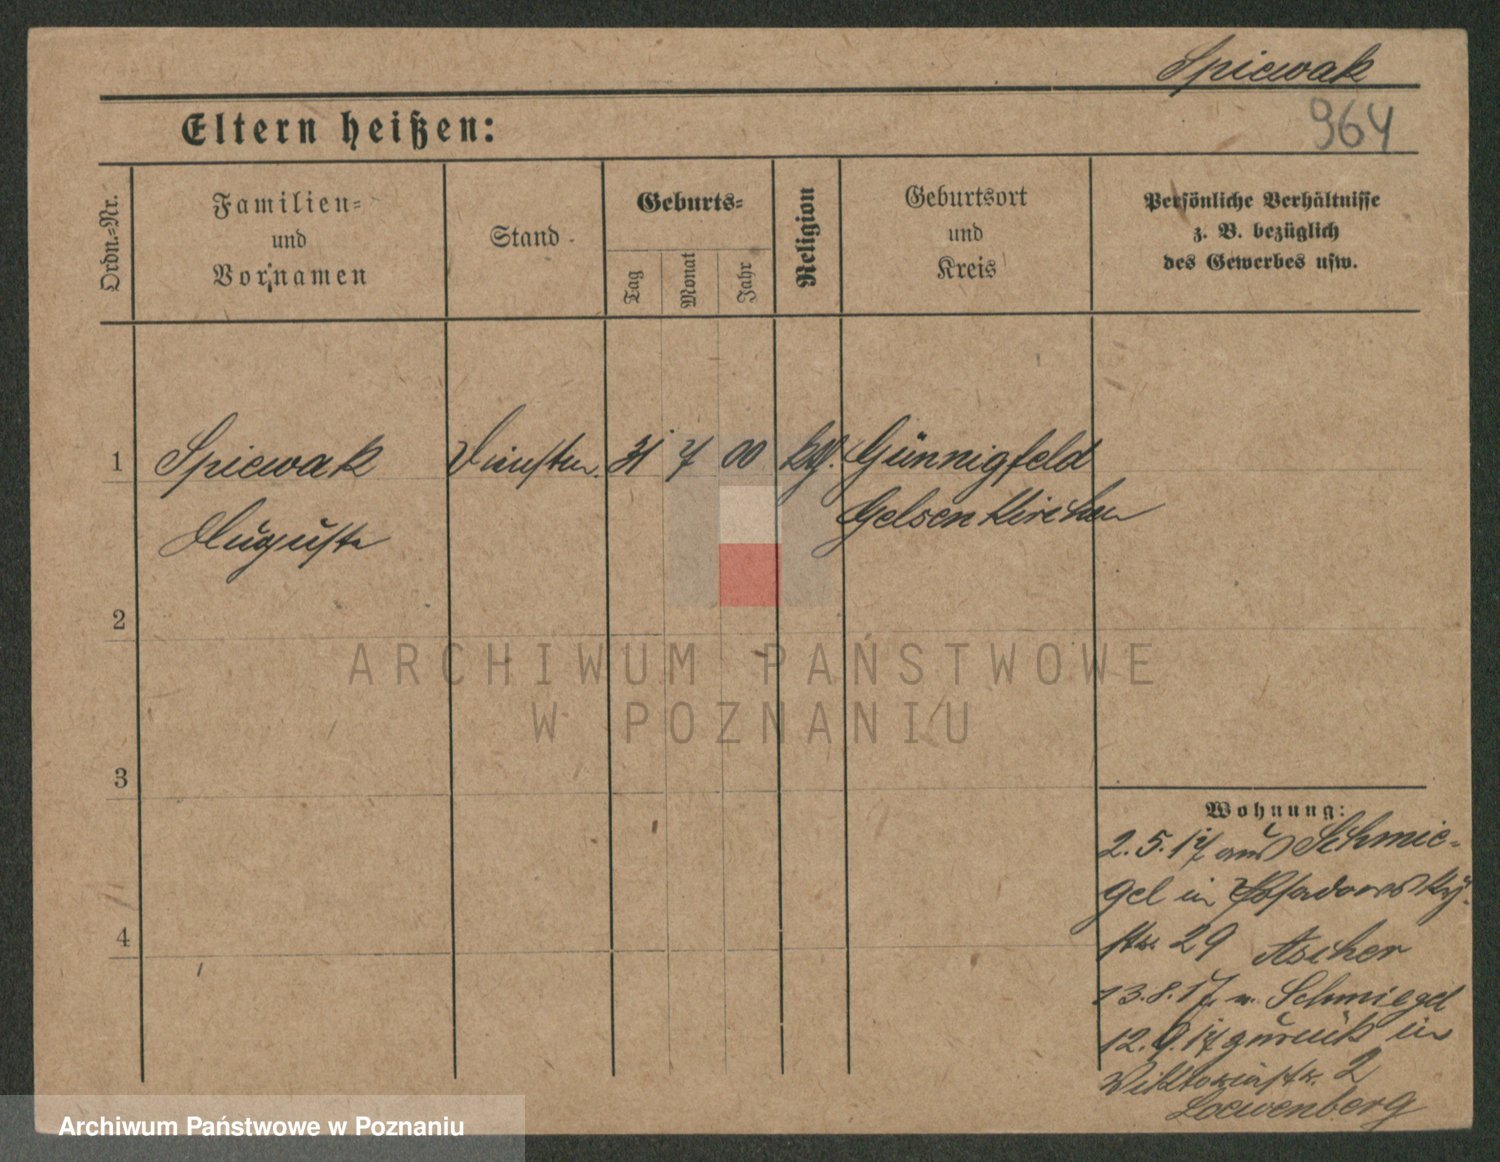 Spiewak
964
Eltern heißen:
Ordn.=Nr.
Familien=
und
Vornamen
Stand
Geburts=
Tag
Monat
Jahr
Religion
Geburtsort
und
Kreis
Persönliche Verhältnisse
z. B. bezüglich
des Gewerbes usw.
1
Spiewak
31
7
00
Günnigfeld
Auguste
Gelsenkirchen
2
ARCHIWUM PAŃSTWOWE
W POZNANIU
3
Wohnung:
2.5.17 aus Schmie=
gel in Posadowsky
4
str. 29 Ascher
13.8.17 n. Schmiegel
12.9.17 zurück in
Viktoriastr. 2
Loewenberg
Archiwum Państwowe w Poznaniu